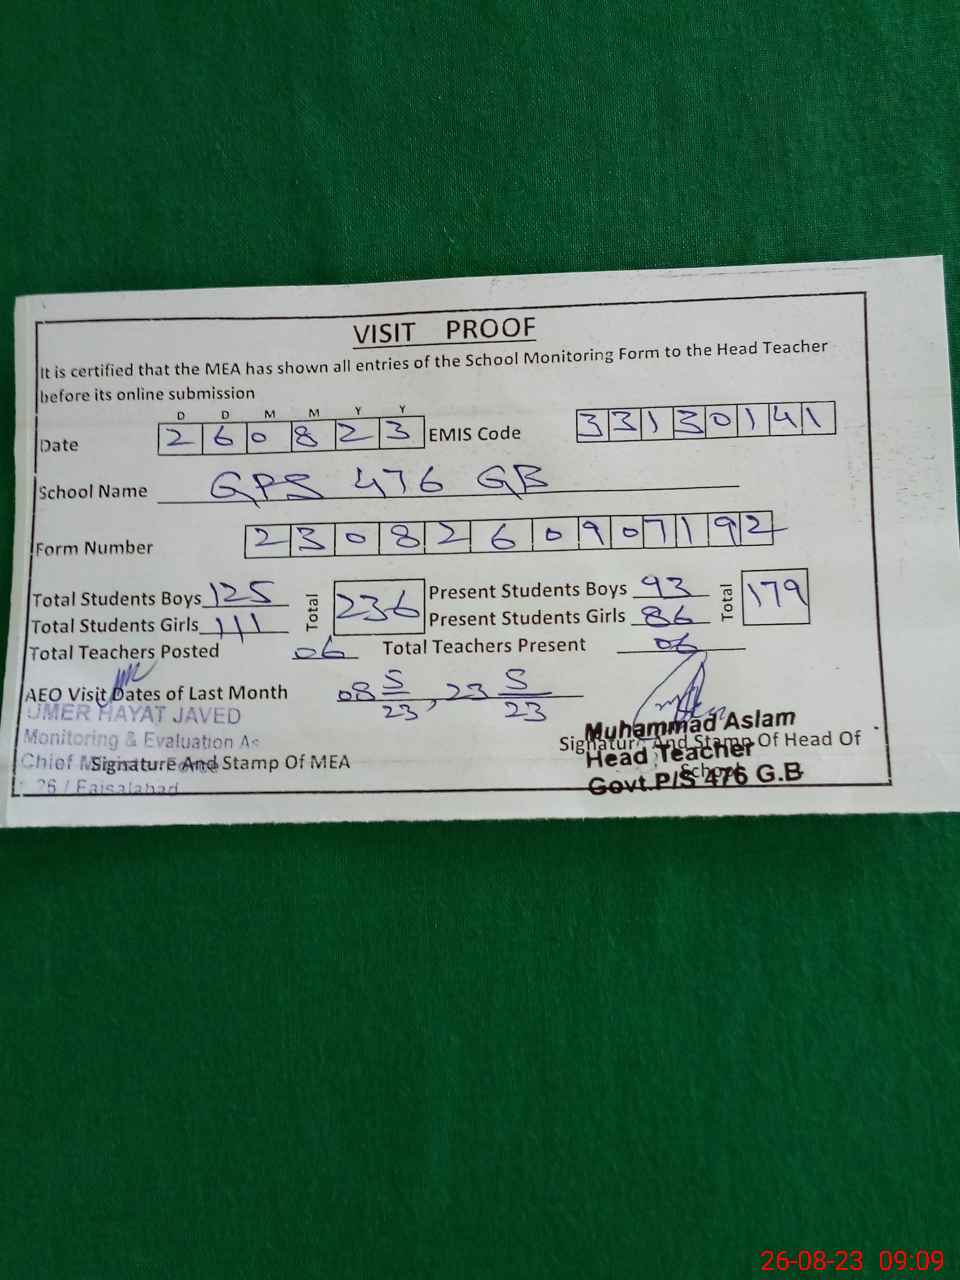 VISIT PROOF
It is certified that the MEA has shown all entries of the School Monitoring Form to the Head Teacher
before its online submission
D D M M Y Y
Date 2 6 0 8 2 3 EMIS Code 3 3 1 3 0 1 4 1
School Name GPS 476 GB
Form Number 2 3 0 8 2 6 0 9 0 7 1 9 2
Total Students Boys 125 Total 236 Present Students Boys 93 Total 179
Total Students Girls 111 Present Students Girls 86
Total Teachers Posted 06 Total Teachers Present 06
AEO Visit Dates of Last Month 08 5/23, 23 5/23
UMER HAYAT JAVED
Monitoring & Evaluation As
Chief
Signature And Stamp Of MEA
26 / Faisalabad
Muhammad Aslam
Signature And Stamp Of Head Of
Head Teacher
School
Govt.P/S 476 G.B
26-08-23 09:09